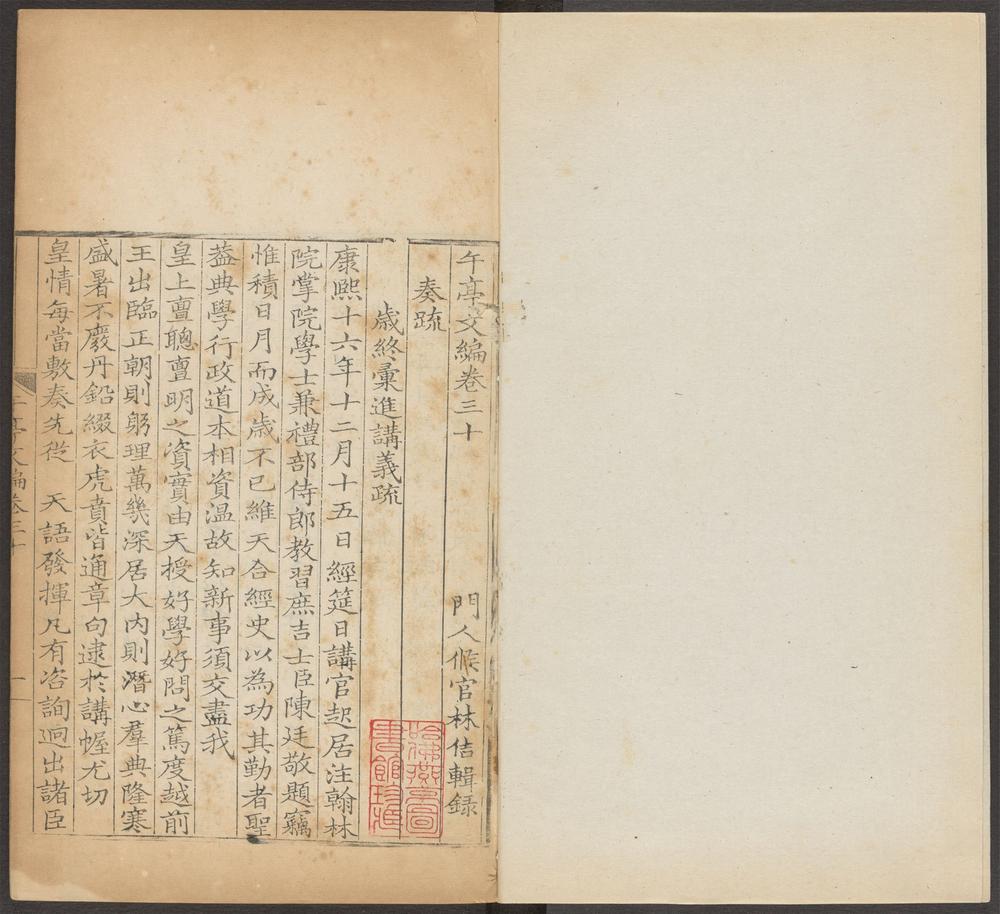 午亭文編卷三十
門人候官林佶輯録
奏疏
歲終彚進講義疏
康熙十六年十二月十五日經筵日講官起居注翰林
院掌院學士兼禮部侍郎教習庶吉士臣陳廷敬題竊
惟積日月而成歲不已維天合經史以為功其勤者聖
葢典學行政道本相資温故知新事須交盡我
皇上亶聰亶明之資實由天授好學好問之篤度越前
王出臨正朝則躬理萬幾深居大内則潛心羣典隆寒
盛暑不廢丹鉛綴衣虎賁皆通章句逮於講幄尤切
皇情每當敷奏先從 天語發揮凡有咨詢迥出諸臣
午亭文編卷三十
一
哈佛燕京圖
書館珍藏